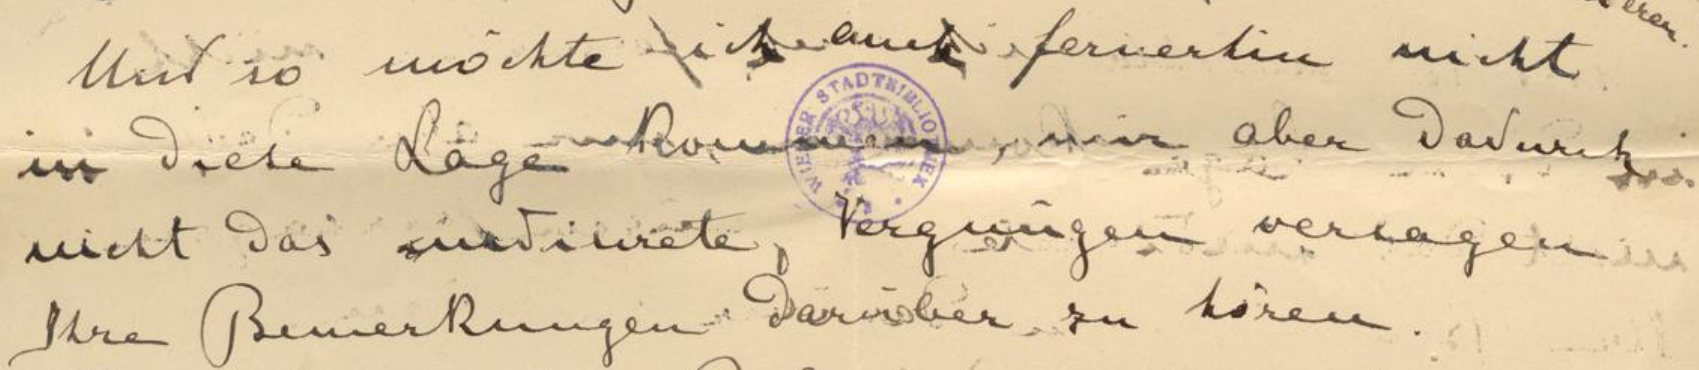 eren.
Und so möchte ich auch fernerhin nicht
in diese Lage kommen, mir aber dadurch
nicht das indiscrete, Vergnügen versagen
Ihre Bemerkungen darüber zu hören.
WIENER STADTBIBLIOTHEK